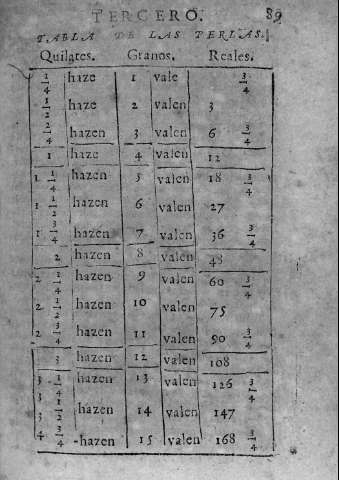 TERCERO. 89
TABLA DE LAS PERLAS.
Quilates. Granos. Reales.
1/4 haze 1 vale 3/4
1/2 haze 2 valen 3
2/4 hazen 3 valen 6 3/4
1 haze 4 valen 12
1 1/4 hazen 5 valen 18 3/4
1 1/2 hazen 6 valen 27
1 3/4 hazen 7 valen 36 3/4
2 hazen 8 valen 48
2 1/4 hazen 9 valen 60 3/4
2 1/2 hazen 10 valen 75
2 3/4 hazen 11 valen 90 3/4
3 hazen 12 valen 108
3 1/4 hazen 13 valen 126 3/4
3 1/2 hazen 14 valen 147
4 3/4 hazen 15 valen 168 3/4